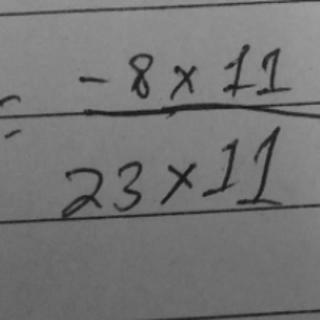 = -8 × 11
23 × 11